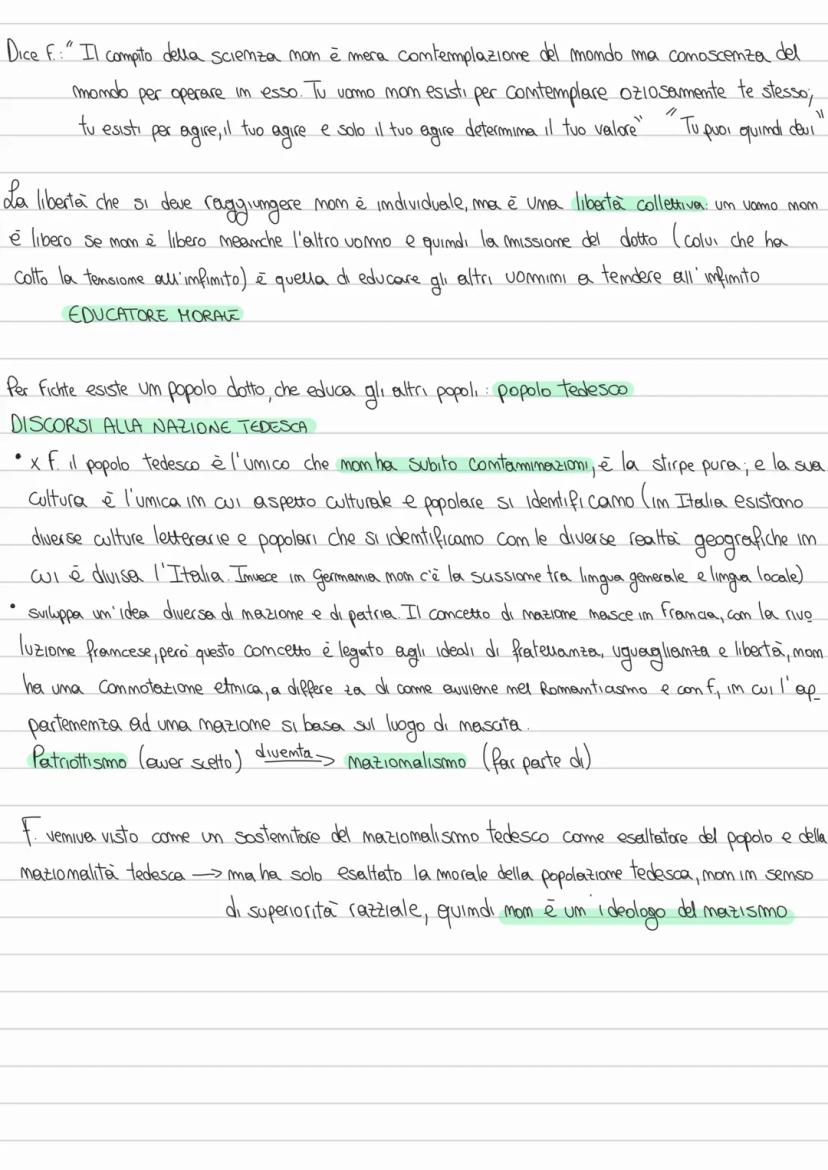 Dice F.: " Il compito della scienza non è mera contemplazione del mondo ma conoscenza del
mondo per operare in esso. Tu uomo non esisti per contemplare oziosamente te stesso;
tu esisti per agire, il tuo agire e solo il tuo agire determina il tuo valore" "Tu puoi quindi devi"
La libertà che si deve raggiungere non è individuale, ma è una libertà collettiva: un uomo non
è libero se non è libero neanche l'altro uomo e quindi la missione del dotto (colui che ha
colto la tensione all'infinito) è quella di educare gli altri uomini a tendere all'infinito
EDUCATORE MORALE
Per Fichte esiste un popolo dotto, che educa gli altri popoli: popolo tedesco
DISCORSI ALLA NAZIONE TEDESCA
• x F. il popolo tedesco è l'unico che non ha subito contaminazioni, è la stirpe pura; e la sua
cultura è l'unica in cui aspetto culturale e popolare si identificano (in Italia esistono
diverse culture letterarie e popolari che si identificano con le diverse realtà geografiche in
cui è divisa l'Italia. Invece in Germania non c'è la scissione tra lingua generale e lingua locale)
• sviluppa un'idea diversa di nazione e di patria. Il concetto di nazione nasce in Francia, con la rivo
luzione francese, però questo concetto è legato agli ideali di fratellanza, uguaglianza e libertà, non
ha una connotazione etnica, a differe za di come avviene nel Romanticismo e con f, in cui l'ap_
partenenza ad una nazione si basa sul luogo di nascita.
Patriottismo (aver scelto) diventa → nazionalismo (far parte di)
F. veniva visto come un sostenitore del nazionalismo tedesco come esaltatore del popolo e della
nazionalità tedesca → ma ha solo esaltato la morale della popolazione tedesca, non in senso
di superiorità razziale, quindi non è un ideologo del nazismo